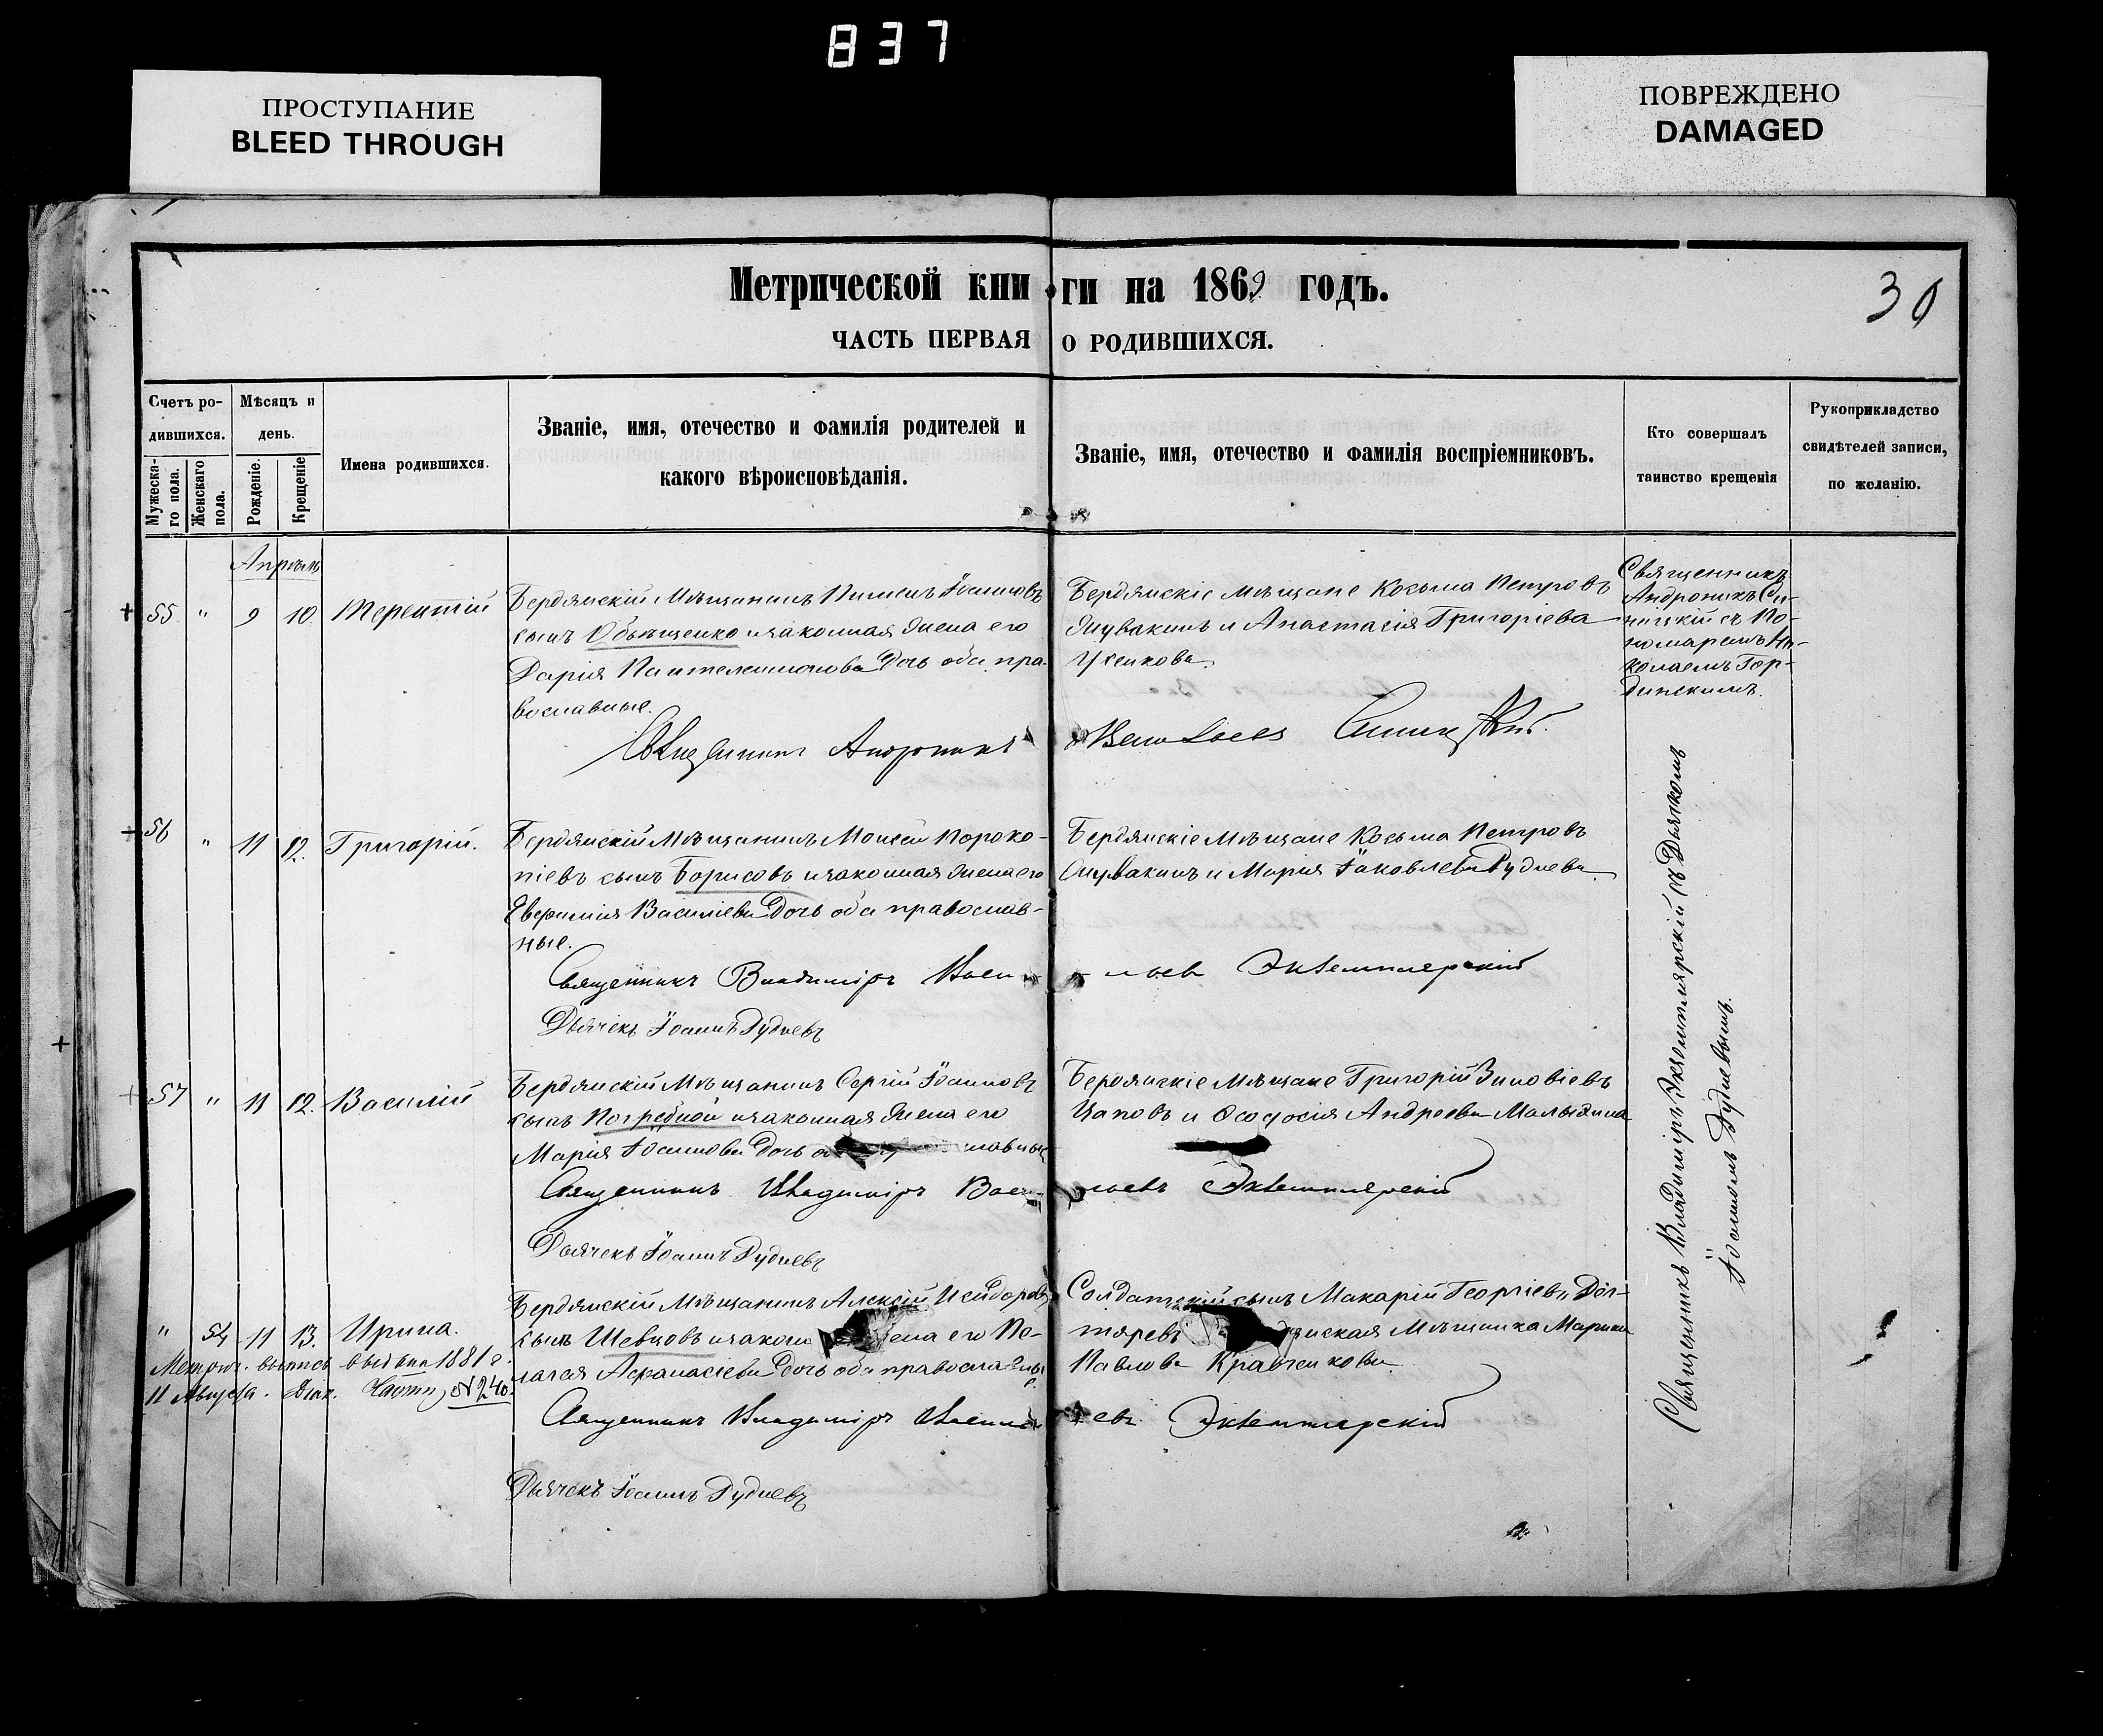 837
ПРОСТУПАНИЕ
BLEED THROUGH
ПОВРЕЖДЕНО
DAMAGED
Метрической книги на 1869 годъ.
30
ЧАСТЬ ПЕРВАЯ О РОДИВШИХСЯ.
Счетъ родившихся.
Мужеска-
го пола.
Женскаго
пола.
Мѣсяцъ и
день.
Рожденіе.
Крещеніе
Имена родившихся.
Званіе, имя, отечество и фамилія родителей и
какого вѣроисповѣданія.
Званіе, имя, отечество и фамилія воспріемниковъ.
Кто совершалъ
таинство крещенія
Рукоприкладство
свидѣтелей записи,
по желанію.
Апрѣль
55 " 9 10 Терентій
Бердянскій Мѣщанинъ Пименъ Іоанновъ
сынъ Обыщенко и законная жена его
Дарія Пантелеимонова дочь оба пра-
вославные.
Бердянскіе мѣщане Косьма Петровъ
и Анастасія Григоріева
Священникъ
Андроникъ Си-
ницкій съ По-
номаремъ Ни-
колаемъ Гор-
динскимъ.
Священникъ Андроникъ Синицкій.
56 " 11 12. Григорій.
Бердянскій Мѣщанинъ Моисей Пороко-
піевъ сынъ Борисовъ и законная жена его
Евфимія Василіева дочь оба православ-
ные.
Бердянскіе Мѣщане Косьма Петровъ
и Марія Іаковлева Руднева
Священникъ Владиміръ Васильевъ Экземплярскій
Дьячекъ Іоаннъ Рудневъ
57 " 11 12. Василій
Бердянскій Мѣщанинъ Сергій Іоанновъ
сынъ Погребной и законная жена его
Марія Іоаннова дочь славные
Бердянскіе Мѣщане Григорій Зиновіевъ
Цаповъ и Ѳеодосія Андреева Малыхина
Священникъ Владиміръ Васильевъ Экземплярскій
Дьячекъ Іоаннъ Рудневъ
" 54 11 13. Ирина.
Метрич. выпись выдана 1881 г.
11 Августа. № 240.
Бердянскій Мѣщанинъ Алексій Исидоровъ
сынъ Шевцовъ и закон жена его Пе-
лагея Афанасіева дочь оба православные
Солдатскій сынъ Макарій Георгіевъ Дег-
тяревъ янская Мѣщанка Марина
Павлова Кравченкова
Священникъ Владиміръ Васильевъ Экземплярскій
Дьячекъ Іоаннъ Рудневъ
Священникъ Владиміръ Экземплярскій съ Дьячкомъ
Іоанномъ Рудневымъ.